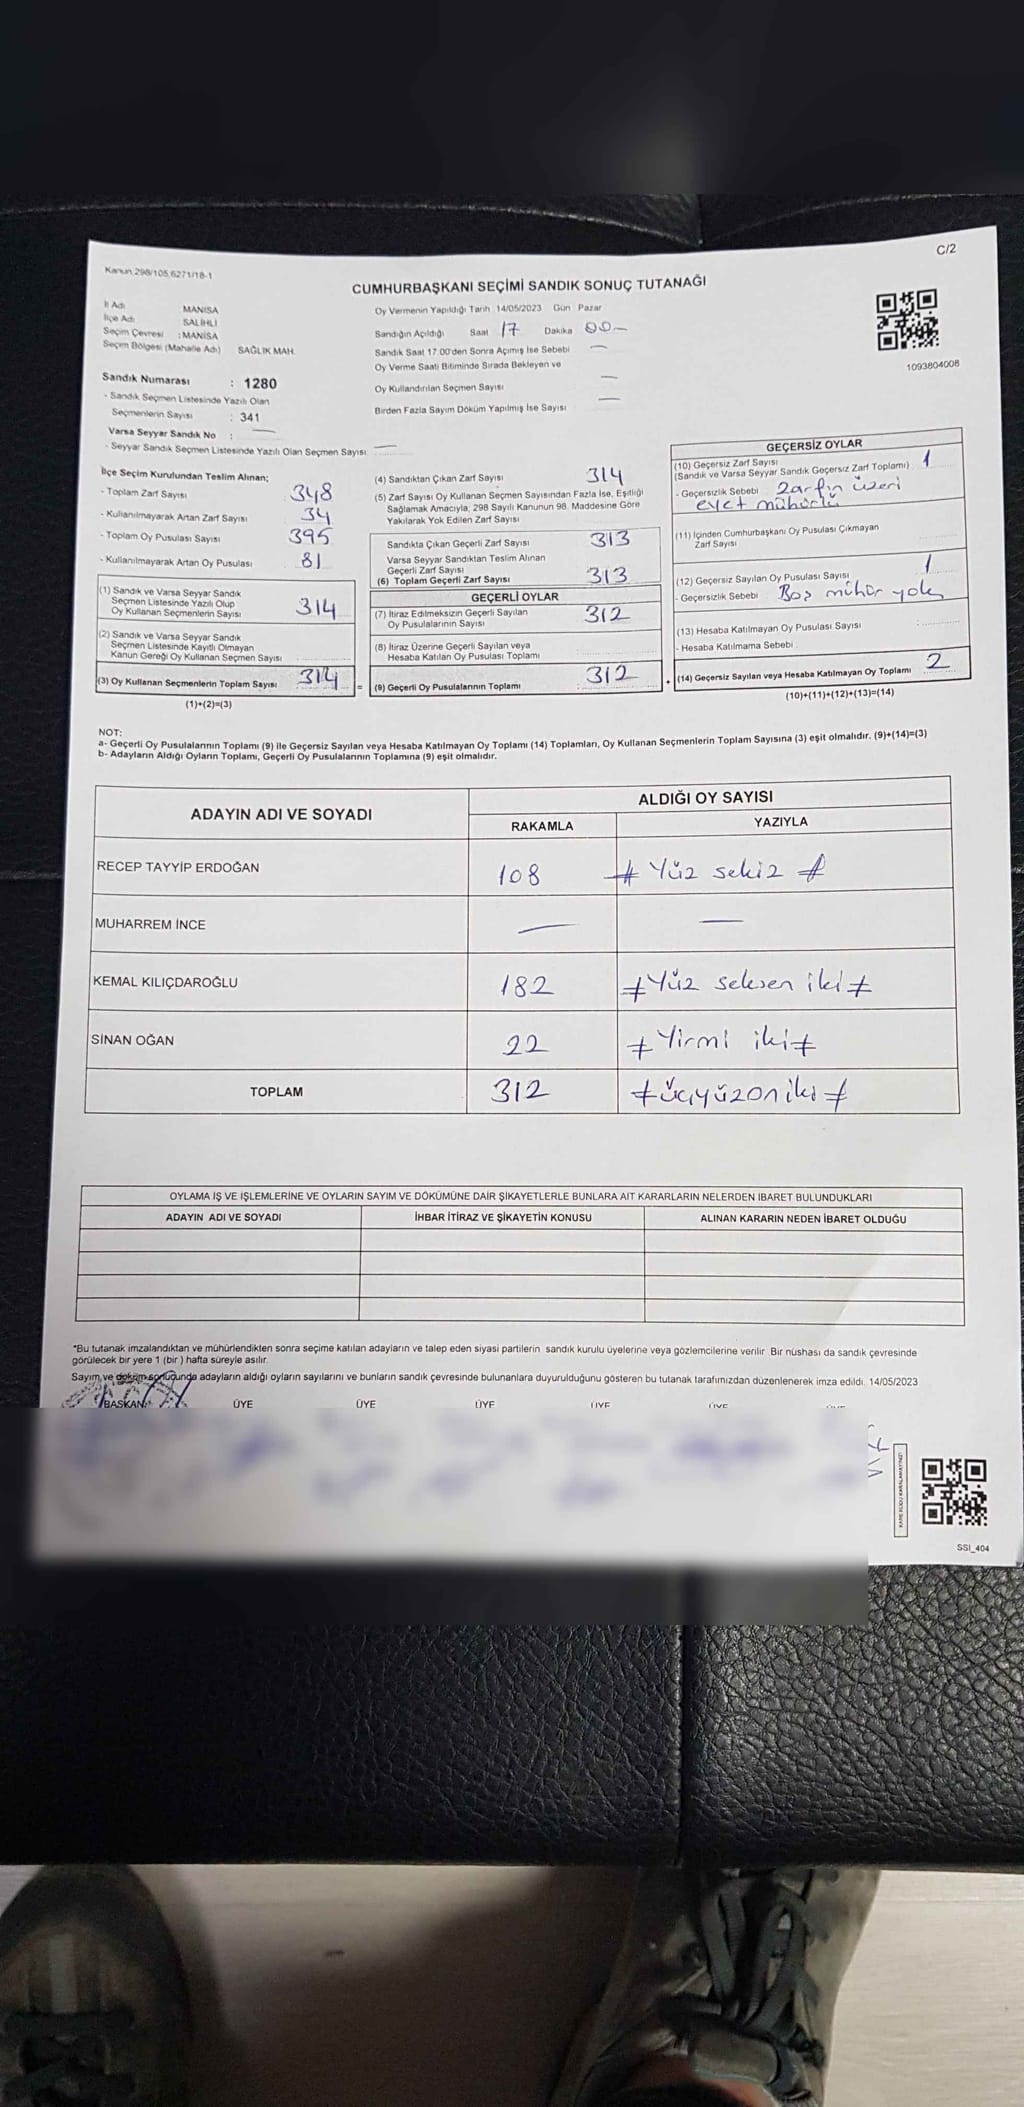 C/2
Kanun 298/105,6271/18-1
CUMHURBAŞKANI SEÇİMİ SANDIK SONUÇ TUTANAĞI
İl Adı MANİSA
İlçe Adı SALİHLİ
Seçim Çevresi : MANİSA
Seçim Bölgesi (Mahalle Adı) SAĞLIK MAH.
Sandık Numarası : 1280
- Sandık Seçmen Listesinde Yazılı Olan
Seçmenlerin Sayısı : 341
Varsa Seyyar Sandık No : —
- Seyyar Sandık Seçmen Listesinde Yazılı Olan Seçmen Sayısı —
Oy Vermenin Yapıldığı Tarih 14/05/2023 Gün : Pazar
Sandığın Açıldığı Saat 17 Dakika 00—
Sandık Saat 17.00'den Sonra Açılmış İse Sebebi —
Oy Verme Saati Bitiminde Sırada Bekleyen ve
Oy Kullandırılan Seçmen Sayısı —
Birden Fazla Sayım Döküm Yapılmış İse Sayısı —
1093804008
İlçe Seçim Kurulundan Teslim Alınan;
- Toplam Zarf Sayısı 348
- Kullanılmayarak Artan Zarf Sayısı 34
- Toplam Oy Pusulası Sayısı 395
- Kullanılmayarak Artan Oy Pusulası 81
(1) Sandık ve Varsa Seyyar Sandık
Seçmen Listesinde Yazılı Olup
Oy Kullanan Seçmenlerin Sayısı 314
(2) Sandık ve Varsa Seyyar Sandık
Seçmen Listesinde Kayıtlı Olmayan
Kanun Gereği Oy Kullanan Seçmen Sayısı
(3) Oy Kullanan Seçmenlerin Toplam Sayısı 314 =
(1)+(2)=(3)
(4) Sandıktan Çıkan Zarf Sayısı 314
(5) Zarf Sayısı Oy Kullanan Seçmen Sayısından Fazla İse, Eşitliği
Sağlamak Amacıyla; 298 Sayılı Kanunun 98. Maddesine Göre
Yakılarak Yok Edilen Zarf Sayısı
Sandıkta Çıkan Geçerli Zarf Sayısı 313
Varsa Seyyar Sandıktan Teslim Alınan
Geçerli Zarf Sayısı
(6) Toplam Geçerli Zarf Sayısı 313
GEÇERLİ OYLAR
(7) İtiraz Edilmeksizin Geçerli Sayılan
Oy Pusulalarının Sayısı 312
(8) İtiraz Üzerine Geçerli Sayılan veya
Hesaba Katılan Oy Pusulası Toplamı
(9) Geçerli Oy Pusulalarının Toplamı 312 +
GEÇERSİZ OYLAR
(10) Geçersiz Zarf Sayısı
(Sandık ve Varsa Seyyar Sandık Geçersiz Zarf Toplamı) 1
- Geçersizlik Sebebi Zarfın üzeri
evet mühürlü
(11) İçinden Cumhurbaşkanı Oy Pusulası Çıkmayan
Zarf Sayısı
(12) Geçersiz Sayılan Oy Pusulası Sayısı 1
- Geçersizlik Sebebi Boş mühür yok
(13) Hesaba Katılmayan Oy Pusulası Sayısı
- Hesaba Katılmama Sebebi
(14) Geçersiz Sayılan veya Hesaba Katılmayan Oy Toplamı 2
(10)+(11)+(12)+(13)=(14)
NOT:
a- Geçerli Oy Pusulalarının Toplamı (9) ile Geçersiz Sayılan veya Hesaba Katılmayan Oy Toplamı (14) Toplamları, Oy Kullanan Seçmenlerin Toplam Sayısına (3) eşit olmalıdır. (9)+(14)=(3)
b- Adayların Aldığı Oyların Toplamı, Geçerli Oy Pusulalarının Toplamına (9) eşit olmalıdır.
ADAYIN ADI VE SOYADI
ALDIĞI OY SAYISI
RAKAMLA YAZIYLA
RECEP TAYYİP ERDOĞAN 108 # Yüz sekiz #
MUHARREM İNCE — —
KEMAL KILIÇDAROĞLU 182 # Yüz seksen iki #
SİNAN OĞAN 22 # Yirmi iki #
TOPLAM 312 # üçyüzoniki #
OYLAMA İŞ VE İŞLEMLERİNE VE OYLARIN SAYIM VE DÖKÜMÜNE DAİR ŞİKAYETLERLE BUNLARA AİT KARARLARIN NELERDEN İBARET BULUNDUKLARI
ADAYIN ADI VE SOYADI İHBAR İTİRAZ VE ŞİKAYETİN KONUSU ALINAN KARARIN NEDEN İBARET OLDUĞU
*Bu tutanak imzalandıktan ve mühürlendikten sonra seçime katılan adayların ve talep eden siyasi partilerin sandık kurulu üyelerine veya gözlemcilerine verilir. Bir nüshası da sandık çevresinde
görülecek bir yere 1 (bir ) hafta süreyle asılır.
Sayım ve döküm sonucunda adayların aldığı oyların sayılarını ve bunların sandık çevresinde bulunanlara duyurulduğunu gösteren bu tutanak tarafımızdan düzenlenerek imza edildi. 14/05/2023
BAŞKAN ÜYE ÜYE ÜYE ÜYE ÜYE
KARE KODU KARALAMAYINIZ!
SSI_404